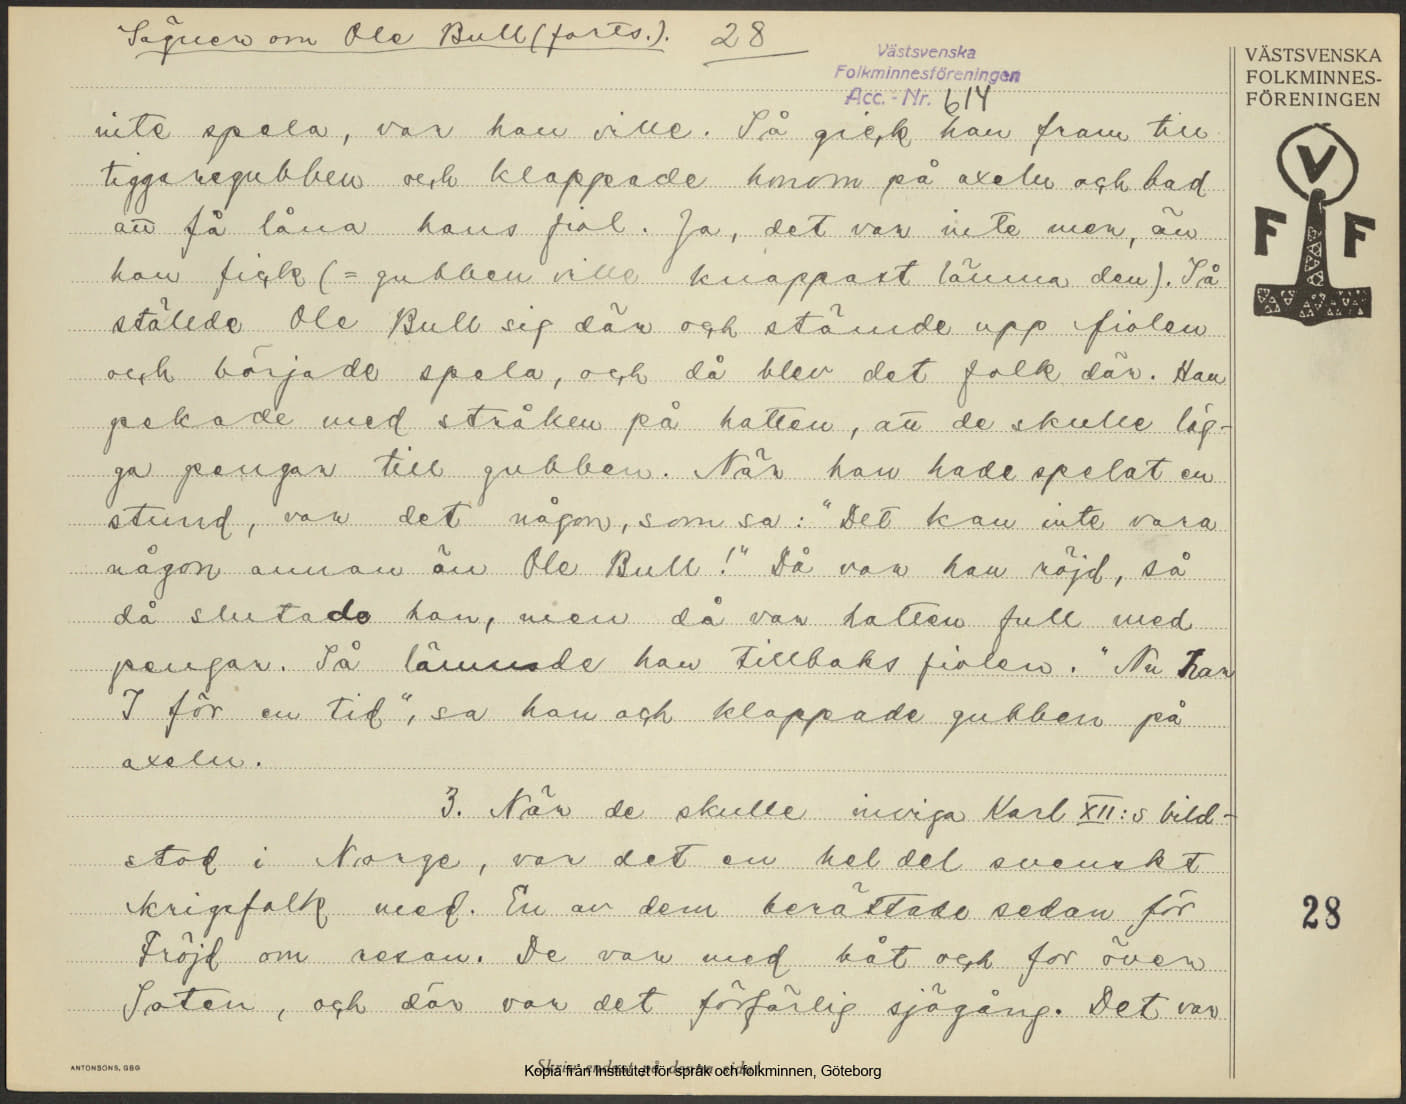 Sägner om Ole Bull (forts.). 28
Västsvenska
Folkminnesföreningen
Acc. - Nr. 614
VÄSTSVENSKA
FOLKMINNES-
FÖRENINGEN
V
F F
inte spela, var han ville. Så gick han fram till
tiggaregubben och klappade honom på axeln och bad
att få låna hans fiol. Ja, det var inte mer, än
han fick (= gubben ville knappast lämna den). Så
ställde Ole Bull sig där och stämde upp fiolen
och började spela, och då blev det folk där. Han
pekade med stråken på hatten, att de skulle läg-
ga pengar till gubben. När han hade spelat en
stund, var det någon, som sa: "Det kan inte vara
någon annan än Ole Bull!" Då var han röjd, så
då slutade han, men då var hatten full med
pengar. Så lämnade han tillbaks fiolen. "Nu har
I för en tid", sa han och klappade gubben på
axeln.
3. När de skulle inviga Karl XII:s bild-
stod i Norge, var det en hel del svenskt
krigsfolk med. En av dem berättade sedan för
Fröjd om resan. De var med båt och for över
Soten, och där var det förfärlig sjögång. Det var
28
ANTONSONS, GBG
Skriv endast på denna sida!
Kopia från Institutet för språk och folkminnen, Göteborg